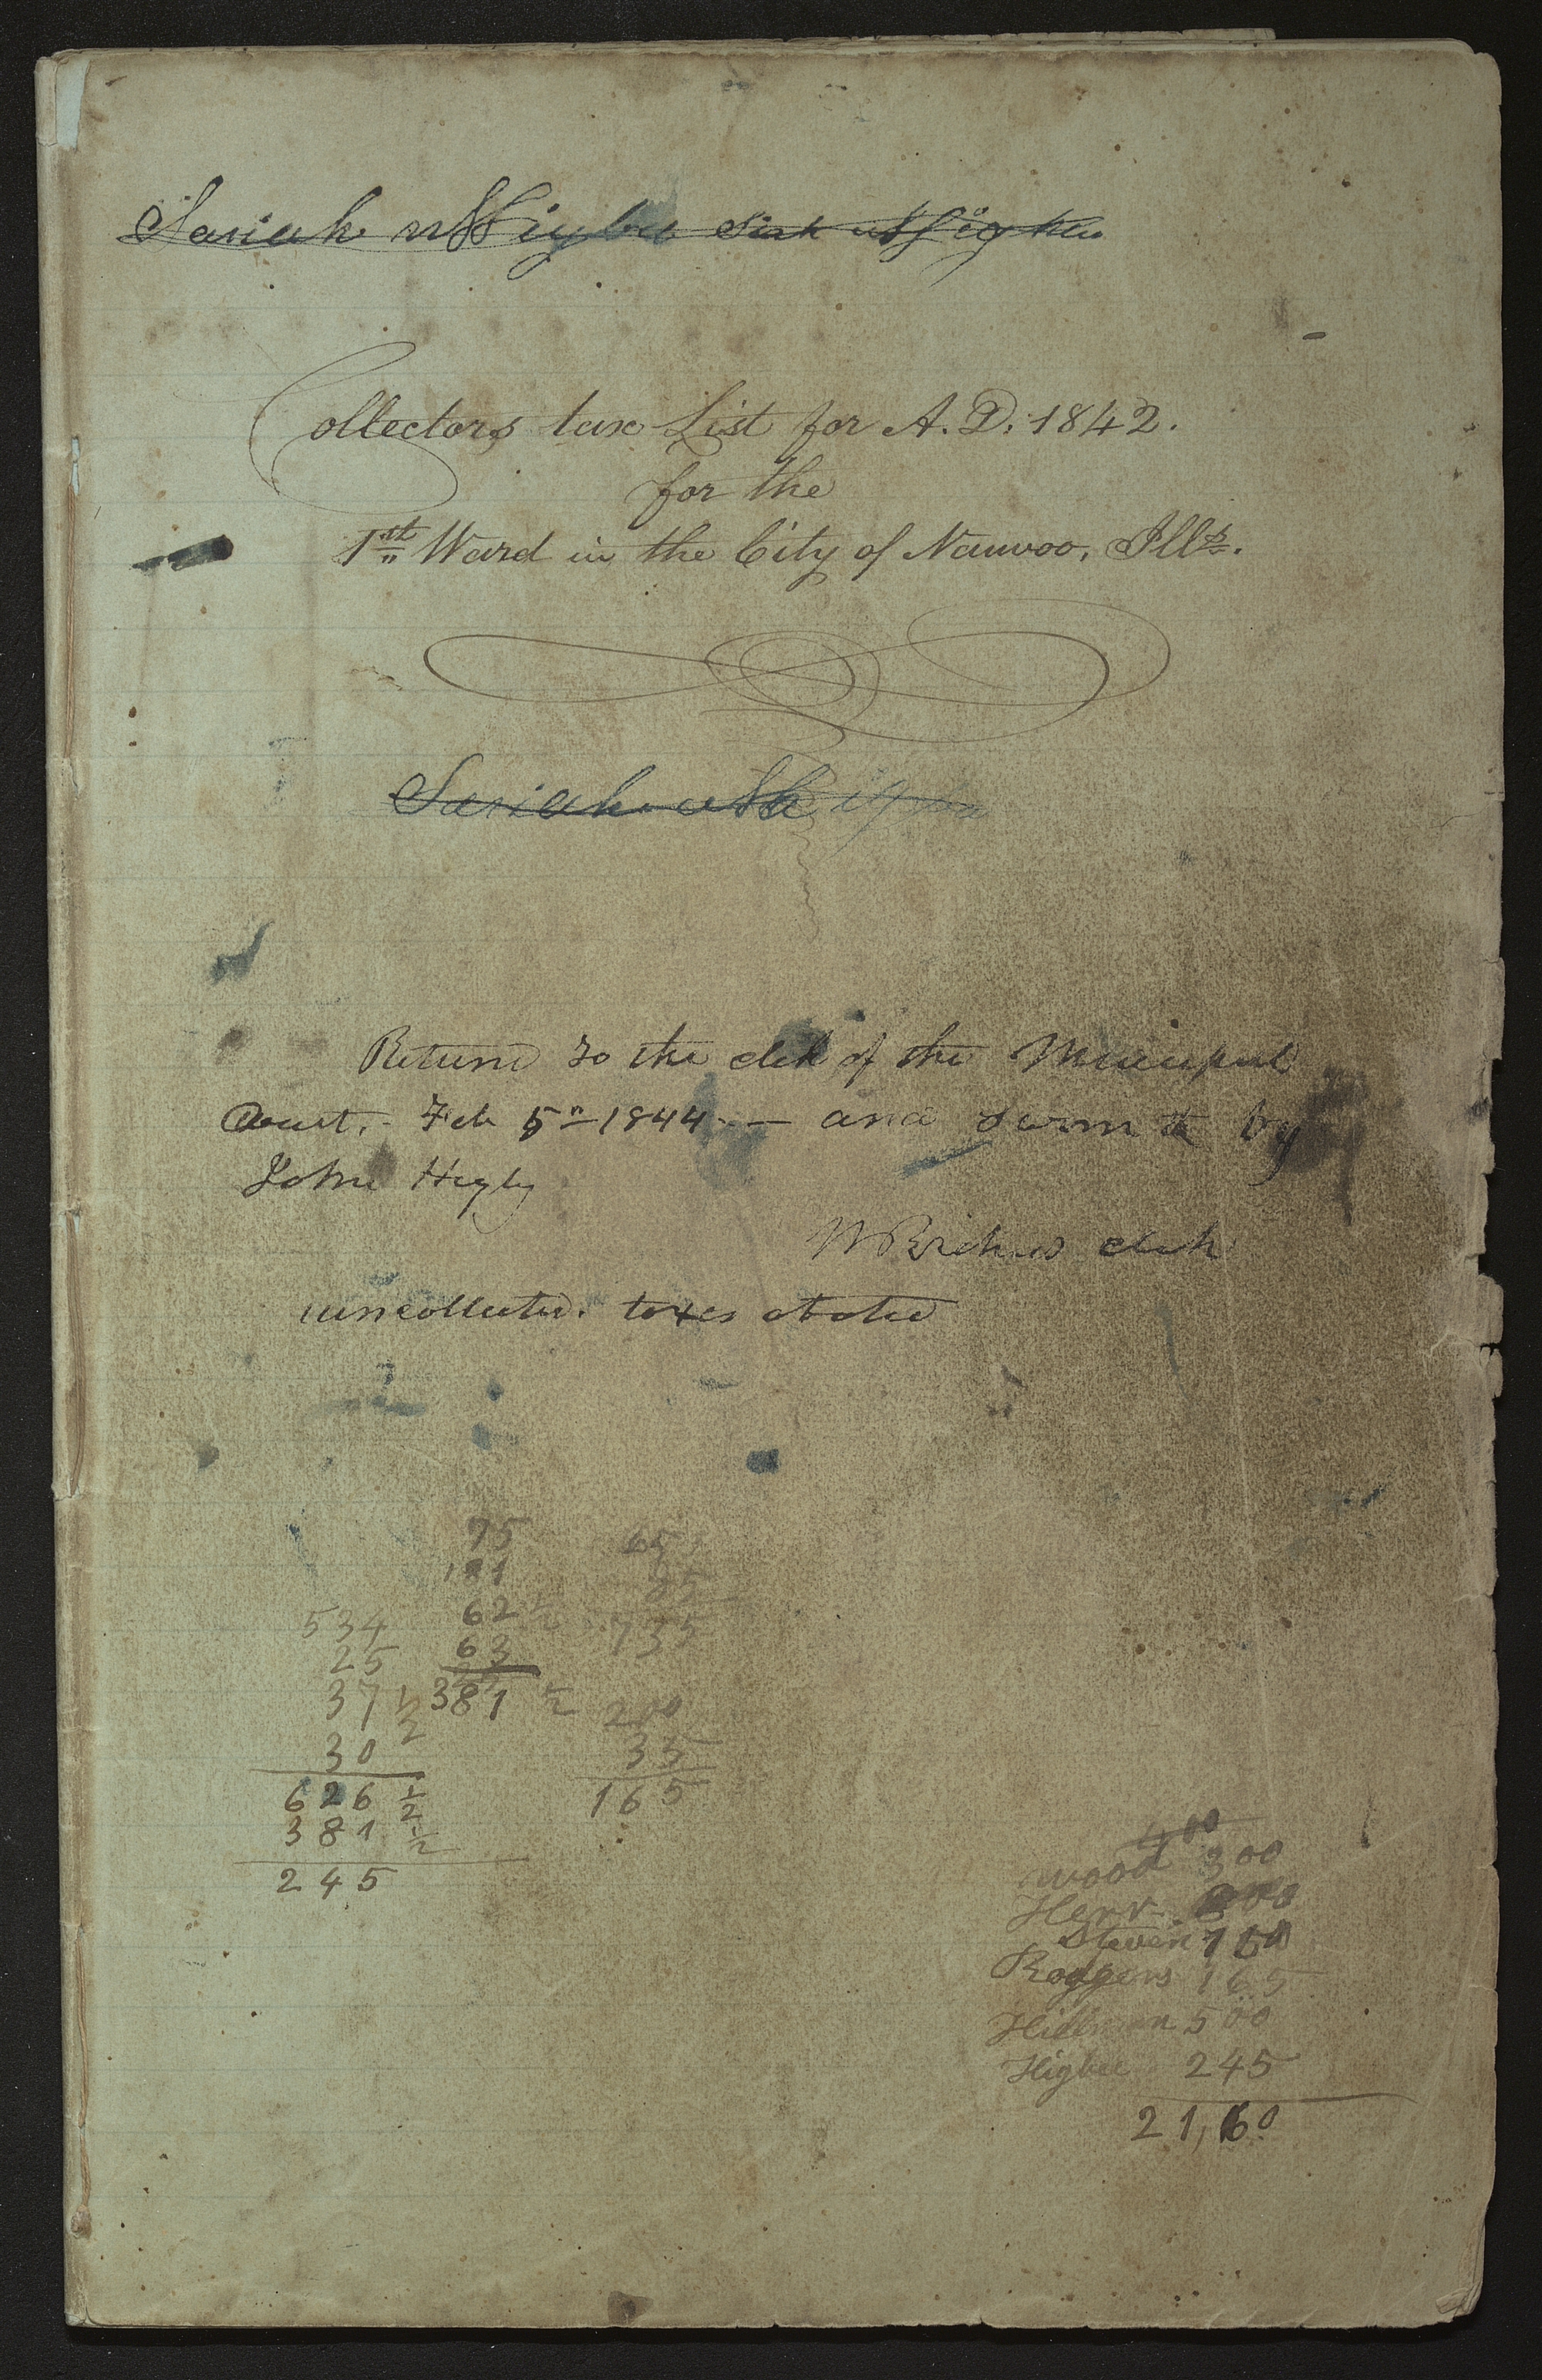 Sariah
Collectors tax List for A. D. 1842.
for the
1st Ward in the City of Nauvoo, Ills.
Sariah
Return to the clek of the Municipal
Court. - Feb 5" - 1844 - — and sworn to by
John Higby
W Richards clek
uncollected. taxes
75
181
62 1/2
63
381 1/2
534
25
37 1/2
30
626 1/2
381 1/2
245
65
735
200
35
165
400
wood 300
Herr
Steven 150
Roggers 165
Hillman 500
Higbee 245
21,60